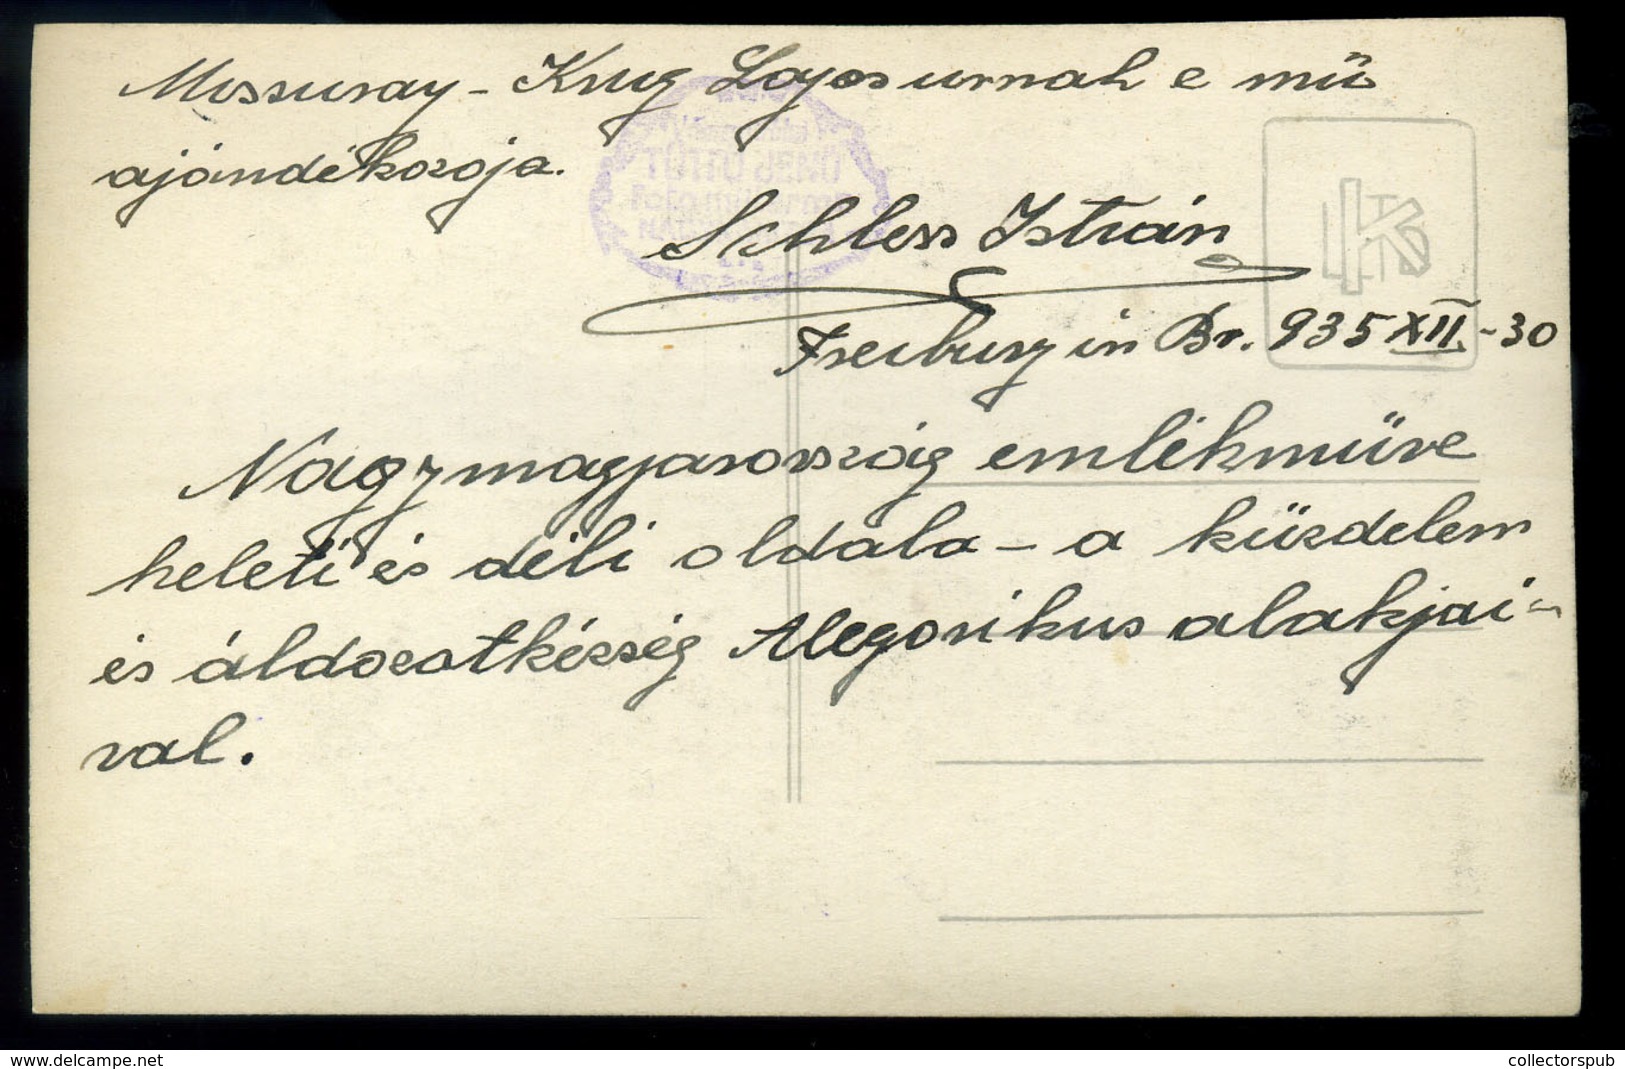 Missuray-Krug Lajos urnak e mü
ajándékozoja.
TÚTÚT JENŐ
Schless István
Freiburg in Br. 935 XII.-30
Nagymagyarország emlékmüve
keleti és déli oldala - a küzdelem
és áldozatkészség Alegorikus alakjai-
val.
www.delcampe.net
collectorspub